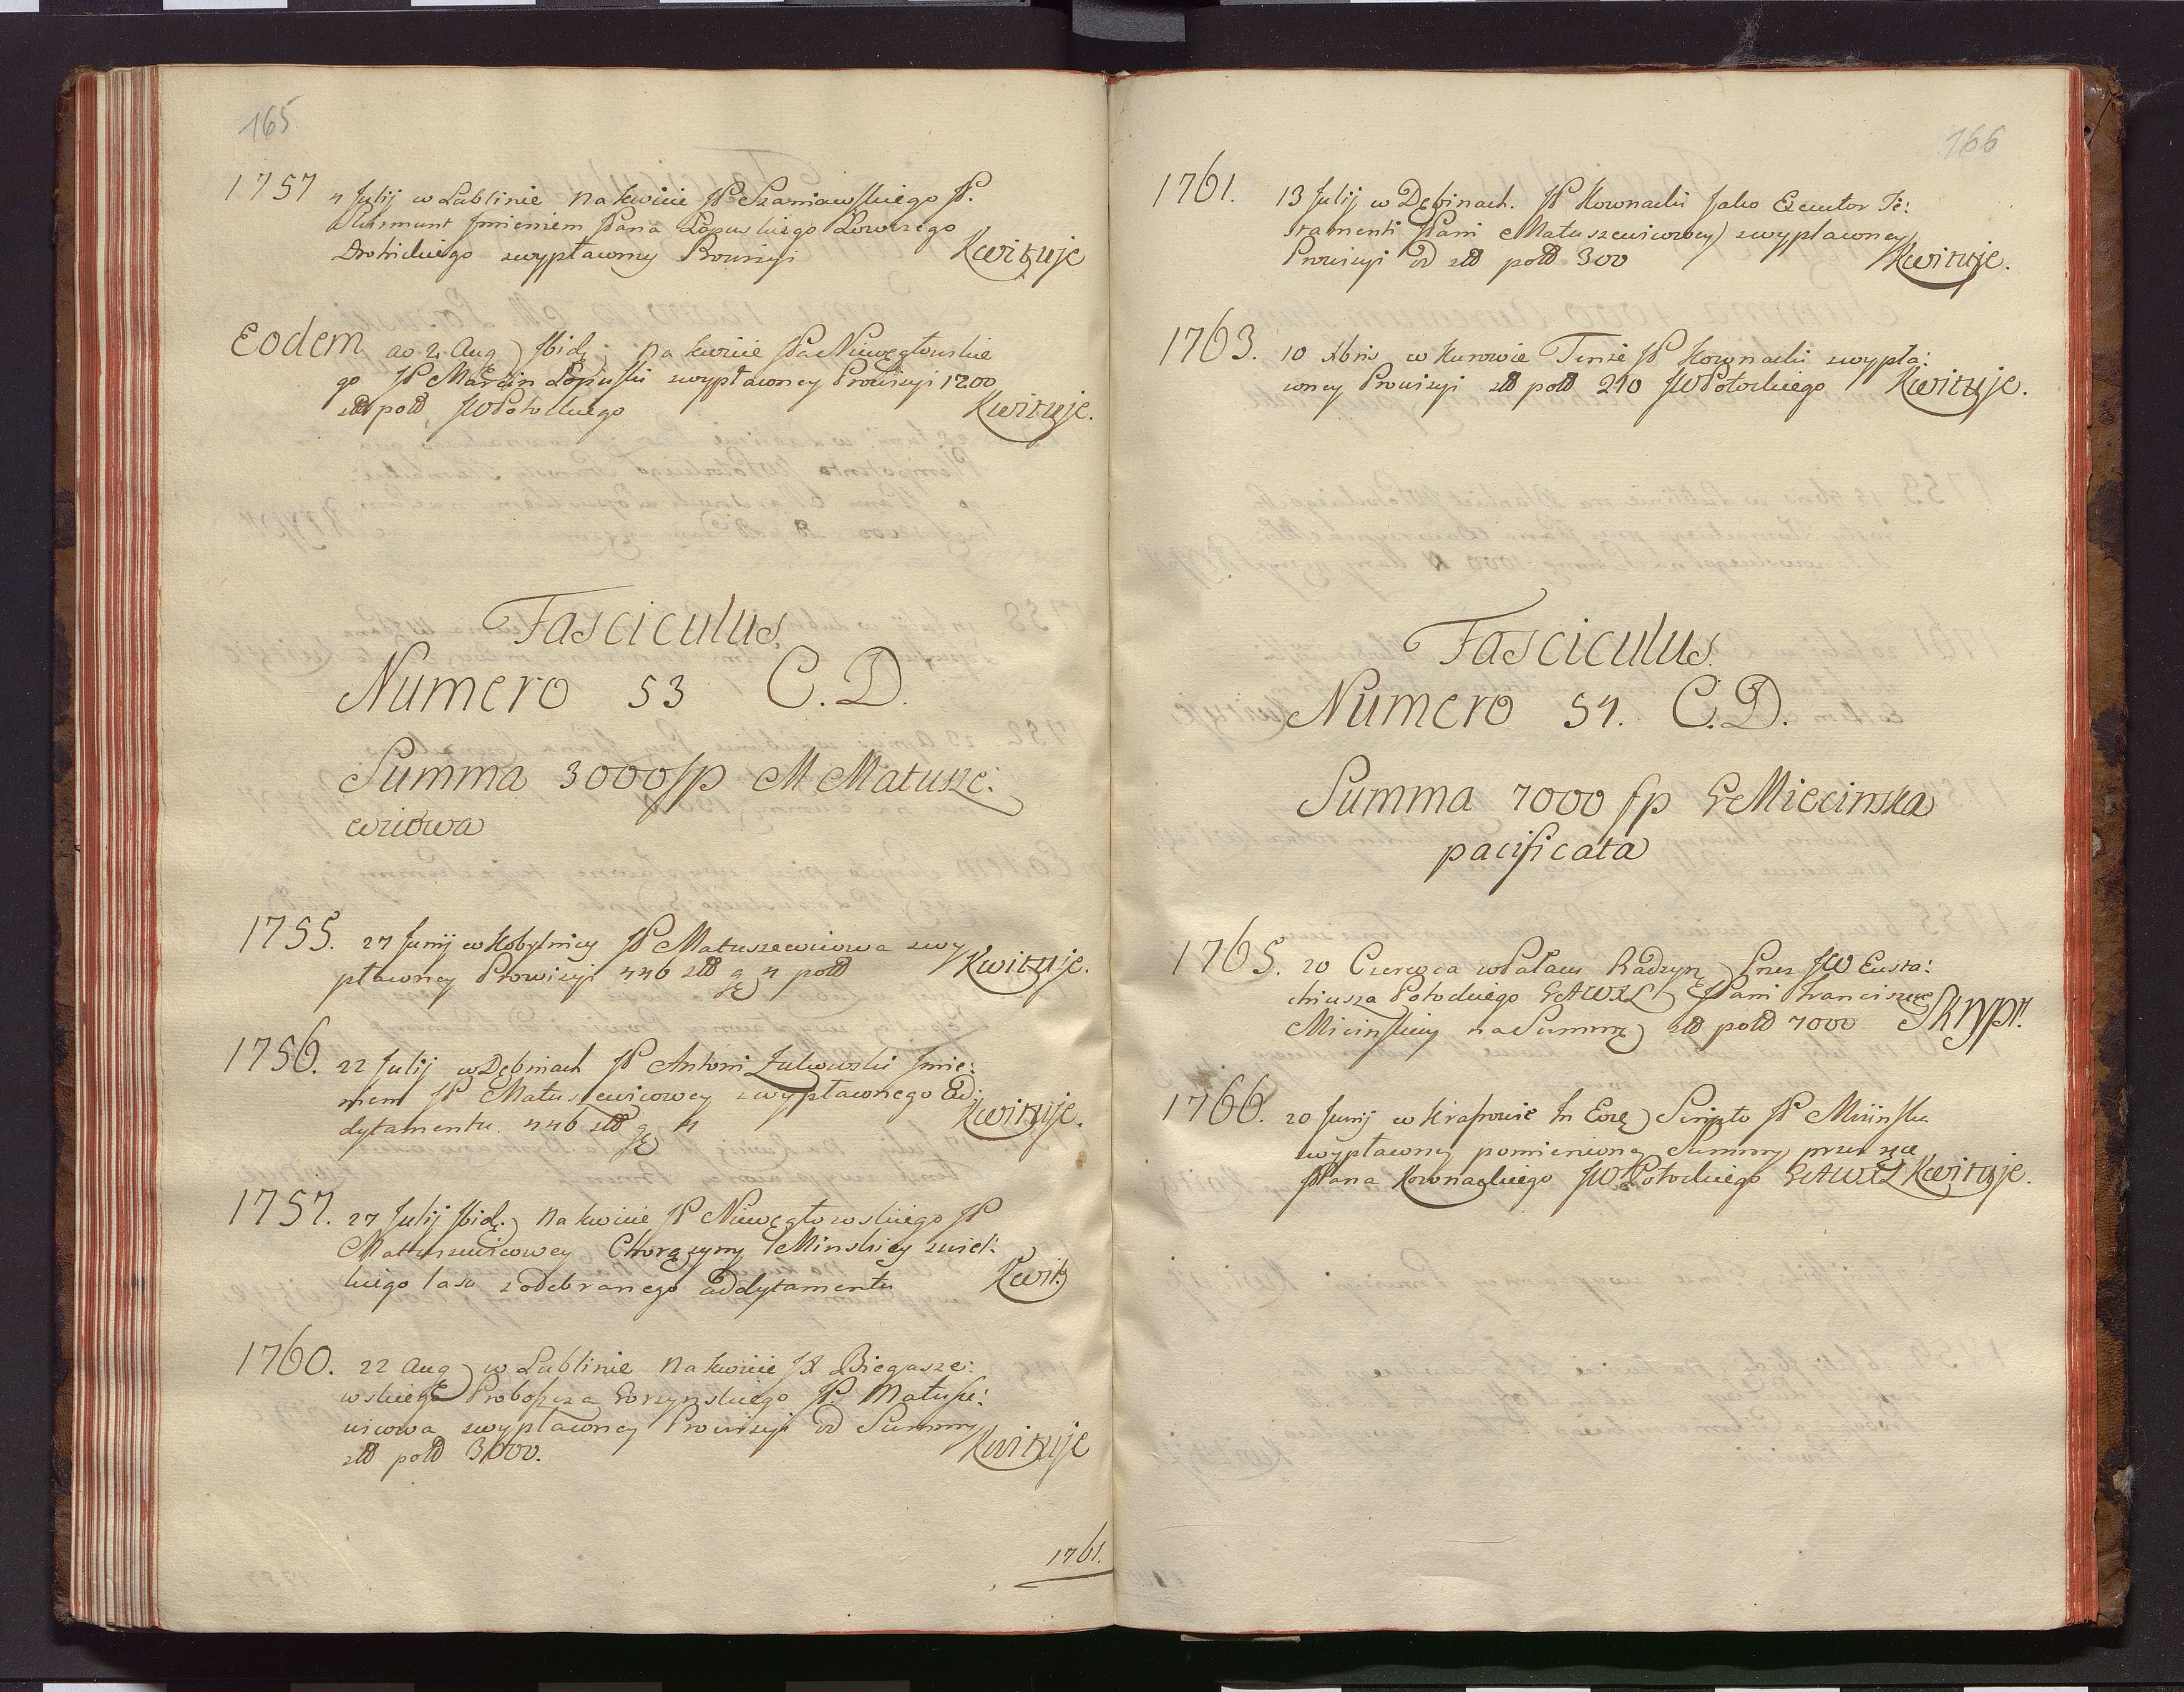 165
1757 4 Julij w Lublinie na kwicie JP. Szaniawskiego JP.
Kurmunt Imieniem Pana Łopuskiego Łowczego
Drohickiego zwypłacony Prowizyi Kwituje
Eodem ao 2. Aug Ibid: na kwicie JPa Niwegłowskie
go JP Marcin Łopuski zwypłaconey Prowizyi 1200
złł polł JWPotockiego Kwituje.
Fasciculus
Numero 53 C. D.
Summa 3000 fp M Matusze:
wicowa
1755. 27 Junij w Kobylnicy JP Matuszewicowa zwy
płaconey Prowizyi 446 złł g 4 polł Kwituje.
1756. 22 Julij w Dębinach JP Antoni Żukowski Imie:
niem JP Matuszewicowey zwypłaconego Ad:
dytamentu 446 złł g 4 Kwituje.
1757. 27 Julij Ibid. na kwicie JP Niwegłowskiego JP
Matuszewicowey Chorążyny Minskiey zwiel:
kiego lasu z odebranego addytamentu Kwit
1760. 22 Aug w Lublinie na kwicie JX Biegasze:
wskiego Proboszcza Gorzynskiego JP. Matusze:
wicowa zwypłaconey Prowizyi od Summy
złł polł 3000. Kwituje
1761.
166
1761. 13 Julij w Dębinach. JP Kownacki Jako Executor Te:
stamenti Pani Matuszewicowey zwypłaconey
Prowizyi od złł polł 300 Kwituje.
1763. 10 Xbris w Kurowie Tenże JP Kownacki zwypła:
coney Prowizyi złł polł 210 JWPotockiego Kwituje.
Fasciculus
Numero 54. C. D.
Summa 7000 fp G Miecinska
pacificata
1765. 20 Czerwca w Pałacu Radzyn Przez JW Eusta:
chiusza Potockiego GAWXL JPani Franciszce
Micinskiey na Summę złł polł 7000 Skrypt.
1766. 20 Junij w Krasowie In Eoq Scripto JP Miiinska
wypłaconą pomienioną Summy przez ręce
JPana Kownackiego JWPotockiego GAWXL Kwituje.